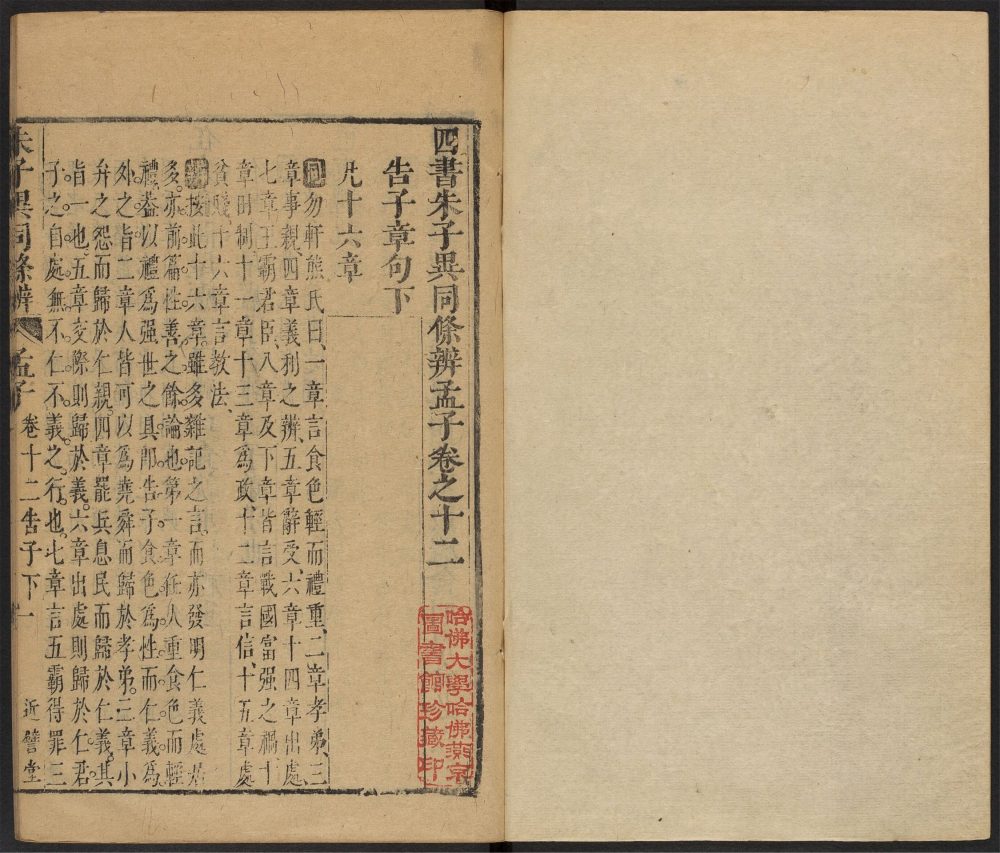 四書朱子異同條辨孟子卷之十二
哈佛大學哈佛燕京
圖書館珍藏印
告子章句下
凡十六章
同勿軒熊氏曰、一章言食色輕而禮重、二章孝弟、三
章事親、四章義利之辨、五章辭受、六章十四章出處、
七章王霸君臣、八章及下章皆言戰國富强之禍、十
章田制、十一章十三章爲政、十二章言信、十五章處
貧賤、十六章言教法、
按此十六章。雖多雜記之言。而亦發明仁義處居
多。亦前篇性善之餘論也。第一章任人重食色而輕
禮。葢以禮爲强世之具。卽告子食色爲性。而仁義爲
外之旨。二章人皆可以爲堯舜。而歸於孝弟。三章小
弁之怨而歸於仁親。四章罷兵息民而歸於仁義。其
旨一也。五章交際則歸於義。六章出處則歸於仁。君
子之自處。無不仁不義之行也。七章言五霸得罪三
朱子異同條辨 孟子 卷十二告子下 一 近譬堂